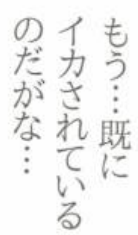 もう…既に
イカされている
のだがな…